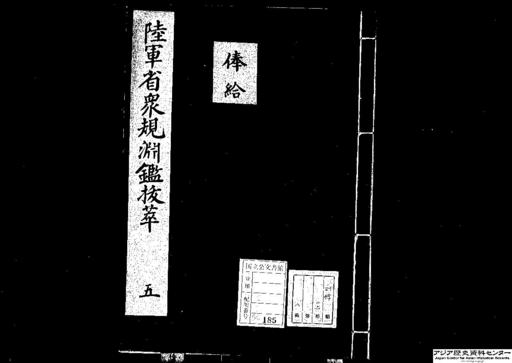 陸軍省衆規淵鑑抜萃 五
俸給
国立公文書館
配架番号
185
アジア歴史資料センター
Japan Center for Asian Historical Records